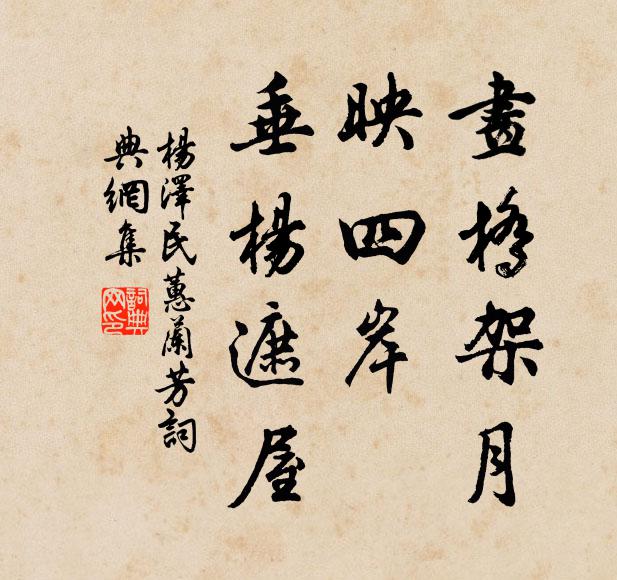 畫橋架月
映四岸
垂楊遮屋
楊澤民蕙蘭芳詞
典網集
詞典
网印